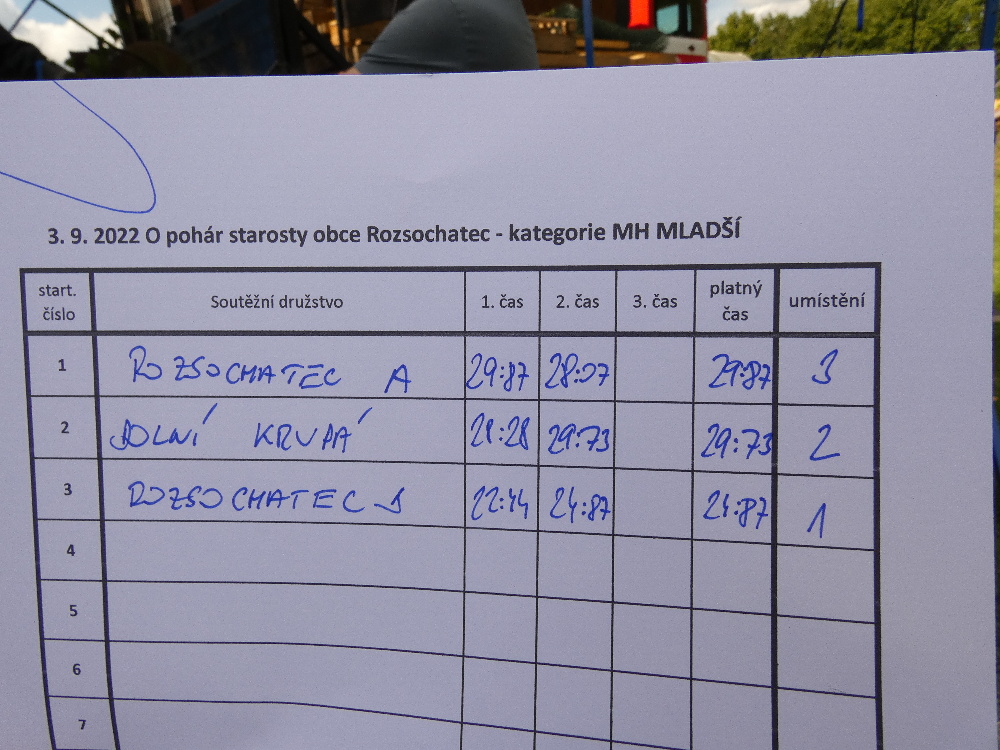 3. 9. 2022 O pohár starosty obce Rozsochatec - kategorie MH MLADŠÍ
start. číslo Soutěžní družstvo 1. čas 2. čas 3. čas platný čas umístění
1 ROZSOCHATEC A 29:87 28:07 29:87 3
2 DOLNÍ KRUPÁ 21:28 29:73 29:73 2
3 ROZSOCHATEC B 22:44 24:87 24:87 1
4
5
6
7